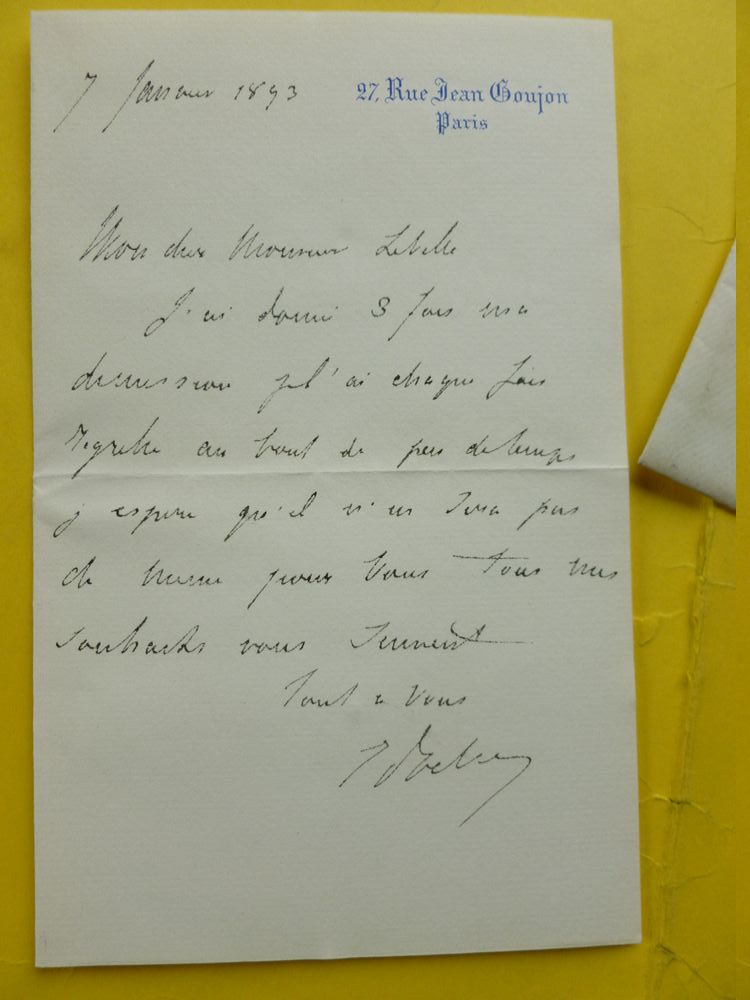 7 Janvier 1893
27, Rue Jean Goujon
Paris
Mon cher Monsieur Lebelle
J'ai donné 3 fois ma
demission je l'ai chaque fois
regrette au bout de peu de temps
j espere qu'il n'en sera pas
de meme pour vous tous mes
souhaits vous suivent
Tout a vous